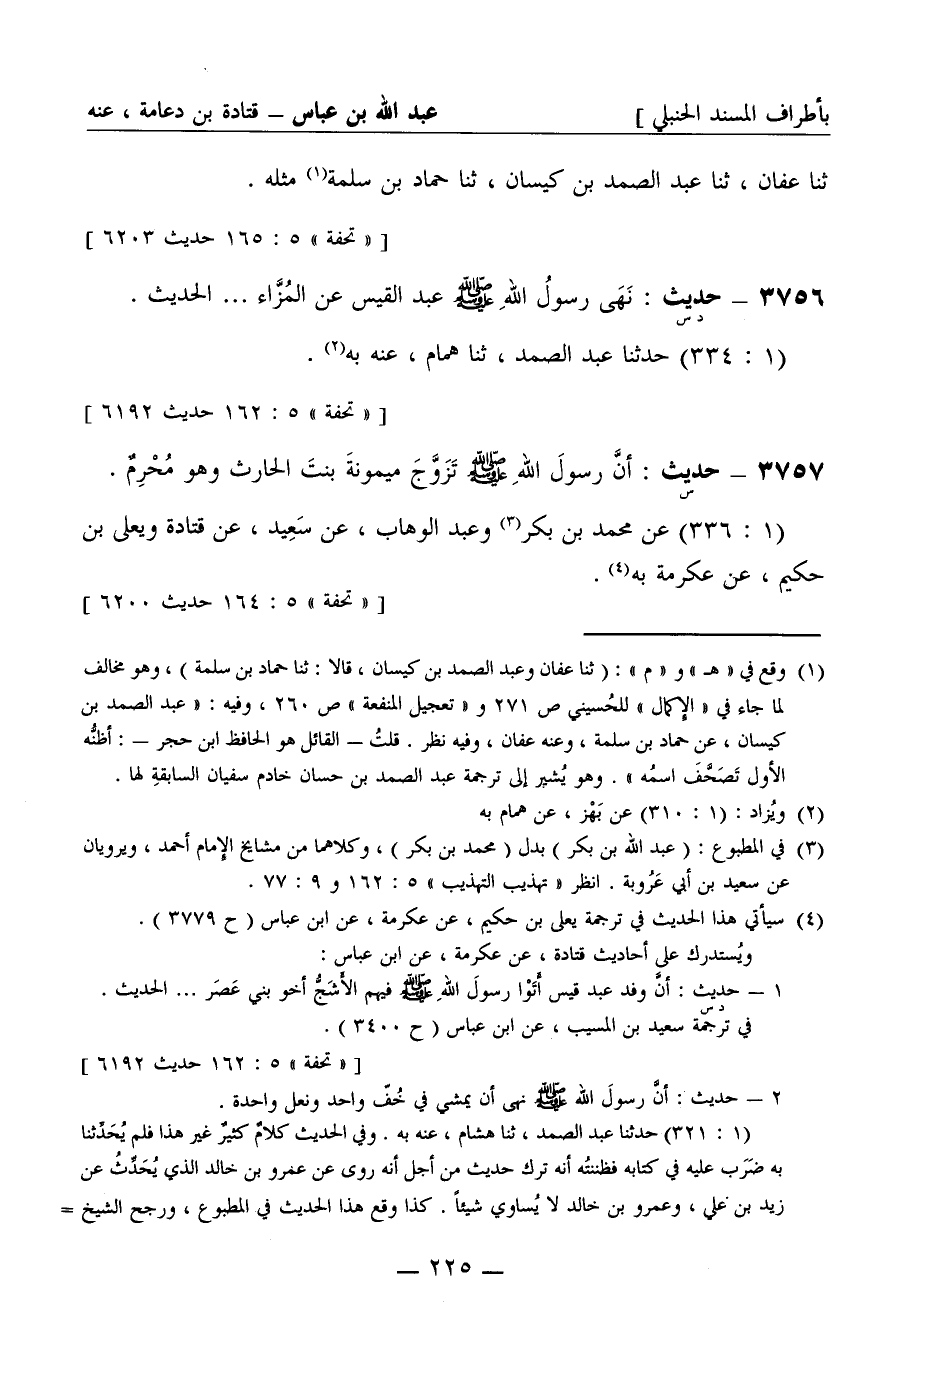 بأطراف المسند الحنبلي ] عبد الله بن عباس – قتادة بن دعامة ، عنه
ثنا عفان ، ثنا عبد الصمد بن كيسان ، ثنا حماد بن سلمة(١) مثله .
[ « تحفة » ٥ : ١٦٥ حديث ٦٢٠٣ ]
٣٧٥٦ – حديث : نَهَى رسولُ اللهِ ﷺ عبد القيس عن المُزَّاء ... الحديث .
د س
(١ : ٣٣٤) حدثنا عبد الصمد ، ثنا همام ، عنه به(٢) .
[ « تحفة » ٥ : ١٦٢ حديث ٦١٩٢ ]
٣٧٥٧ – حديث : أنَّ رسولَ اللهِ ﷺ تَزَوَّجَ ميمونةَ بنتَ الحارث وهو مُحْرِمٌ .
س
(١ : ٣٣٦) عن محمد بن بكر(٣) وعبد الوهاب ، عن سَعِيد ، عن قتادة ويعلى بن
حكيم ، عن عكرمة به(٤) .
[ « تحفة » ٥ : ١٦٤ حديث ٦٢٠٠ ]
(١) وقع في « هـ » و « م » : ( ثنا عفان وعبد الصمد بن كيسان ، قالا : ثنا حماد بن سلمة ) ، وهو مخالف
لما جاء في « الإكمال » للحُسيني ص ٢٧١ و « تعجيل المنفعة » ص ٢٦٠ ، وفيه : « عبد الصمد بن
كيسان ، عن حماد بن سلمة ، وعنه عفان ، وفيه نظر . قلتُ – القائل هو الحافظ ابن حجر – : أظنُّه
الأول تَصَحَّفَ اسمُه » . وهو يُشير إلى ترجمة عبد الصمد بن حسان خادم سفيان السابقةِ لها .
(٢) ويُزاد : (١ : ٣١٠) عن بَهْز ، عن همام به
(٣) في المطبوع : ( عبد الله بن بكر ) بدل ( محمد بن بكر ) ، وكلاهما من مشايخ الإمام أحمد ، ويرويان
عن سعيد بن أبي عَرُوبة . انظر « تهذيب التهذيب » ٥ : ١٦٢ و ٩ : ٧٧ .
(٤) سيأتي هذا الحديث في ترجمة يعلى بن حكيم ، عن عكرمة ، عن ابن عباس ( ح ٣٧٧٩ ) .
ويُستدرك على أحاديث قتادة ، عن عكرمة ، عن ابن عباس :
١ – حديث : أنَّ وفد عبد قيس أَتَوْا رسولَ اللهِ ﷺ فيهم الأَشَجُّ أخو بني عَصَر ... الحديث .
د س
في ترجمة سعيد بن المسيب ، عن ابن عباس ( ح ٣٤٠٠ ) .
[ « تحفة » ٥ : ١٦٢ حديث ٦١٩٢ ]
٢ – حديث : أنَّ رسولَ الله ﷺ نهى أن يمشي في خُفّ واحد ونعل واحدة .
(١ : ٣٢١) حدثنا عبد الصمد ، ثنا هشام ، عنه به . وفي الحديث كلامٌ كثيرٌ غير هذا فلم يُحَدِّثنا
به ضَرَب عليه في كتابه فظننتُه أنه ترك حديث من أجل أنه روى عن عمرو بن خالد الذي يُحَدِّثُ عن
زيد بن علي ، وعمرو بن خالد لا يُساوي شيئاً . كذا وقع هذا الحديث في المطبوع ، ورجح الشيخ =
– ٢٢٥ –